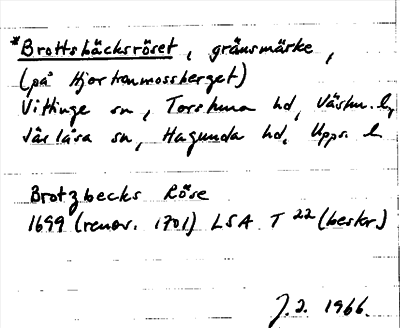 *Brottsbäcksröset, gränsmärke,
(på Hjortronmossberget)
Vittinge sn, Torstuna hd, Västm. l,
Järlåsa sn, Hagunda hd, Upps. l
Brotzbecks Röse
1699 (renov. 1701) LSA T 22 (beskr.)
J.2. 1966.